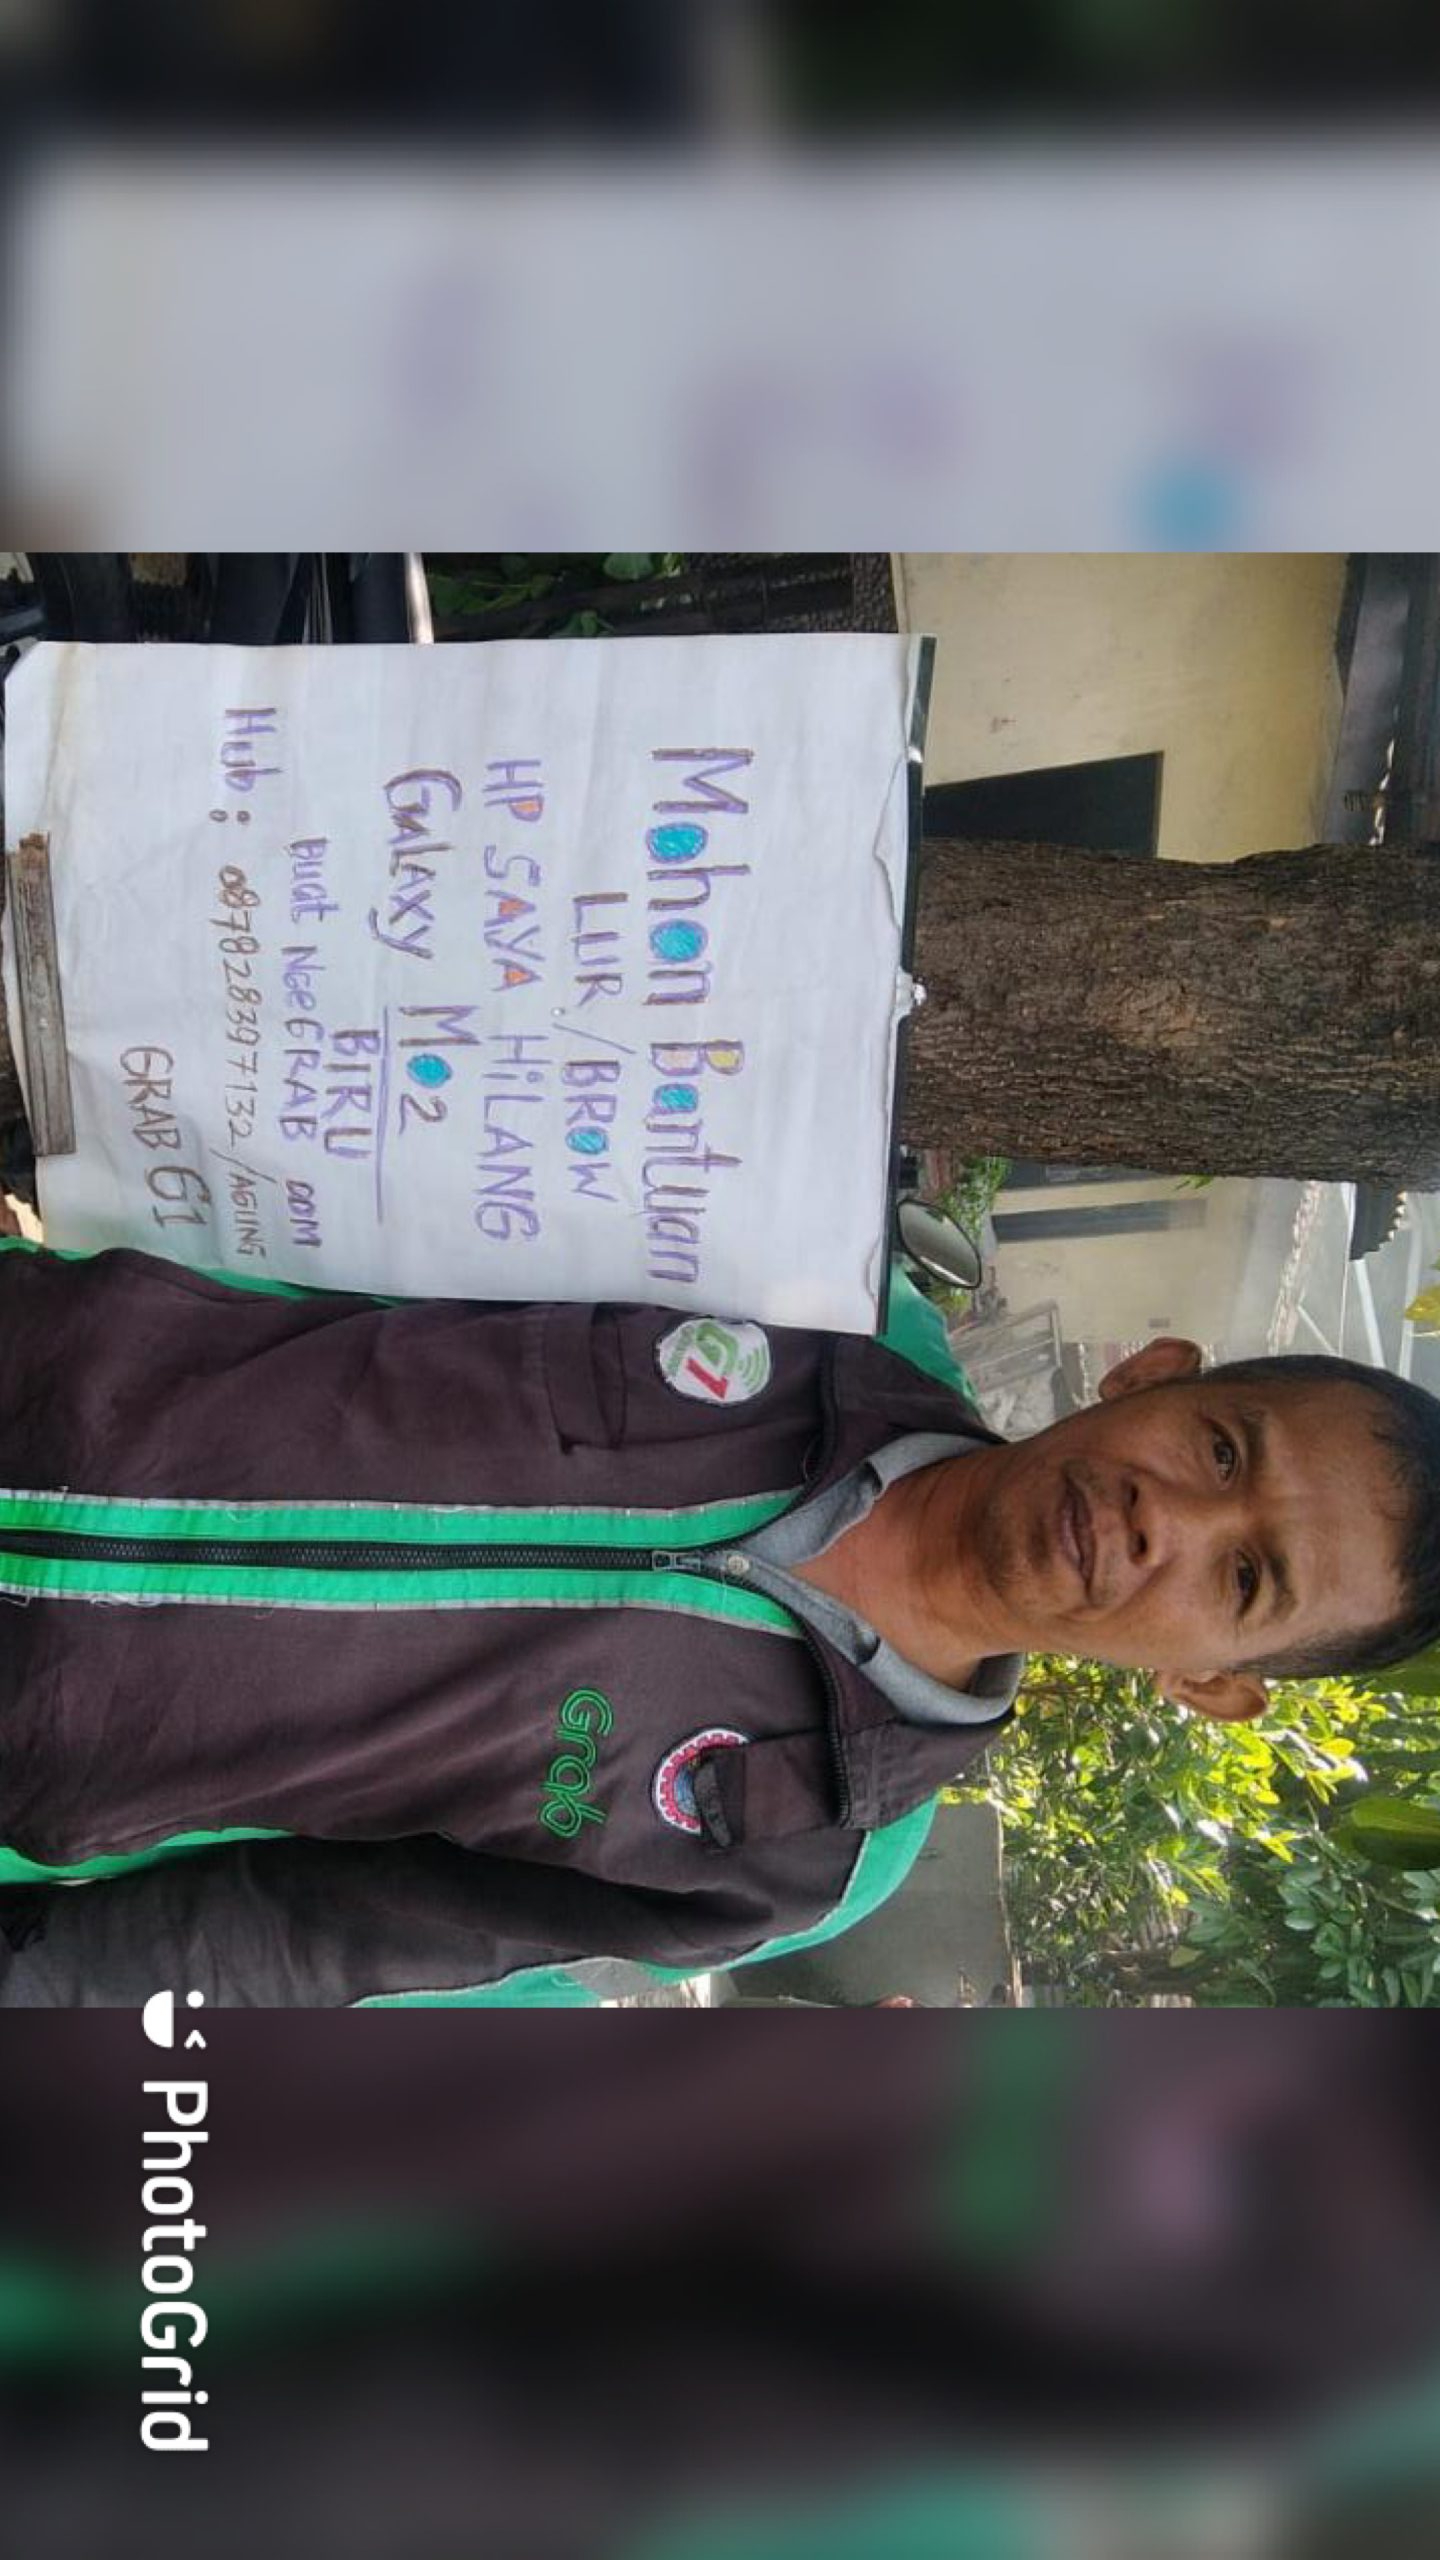 Mohon Bantuan
LIIR./BROW
HP SAYA HiLANG
GaLAXY Mo2
BIRU
BUat NgeGRAB
Hub: 087828397132/AGUNG
GRAB G1
G1
Grab
PhotoGrid